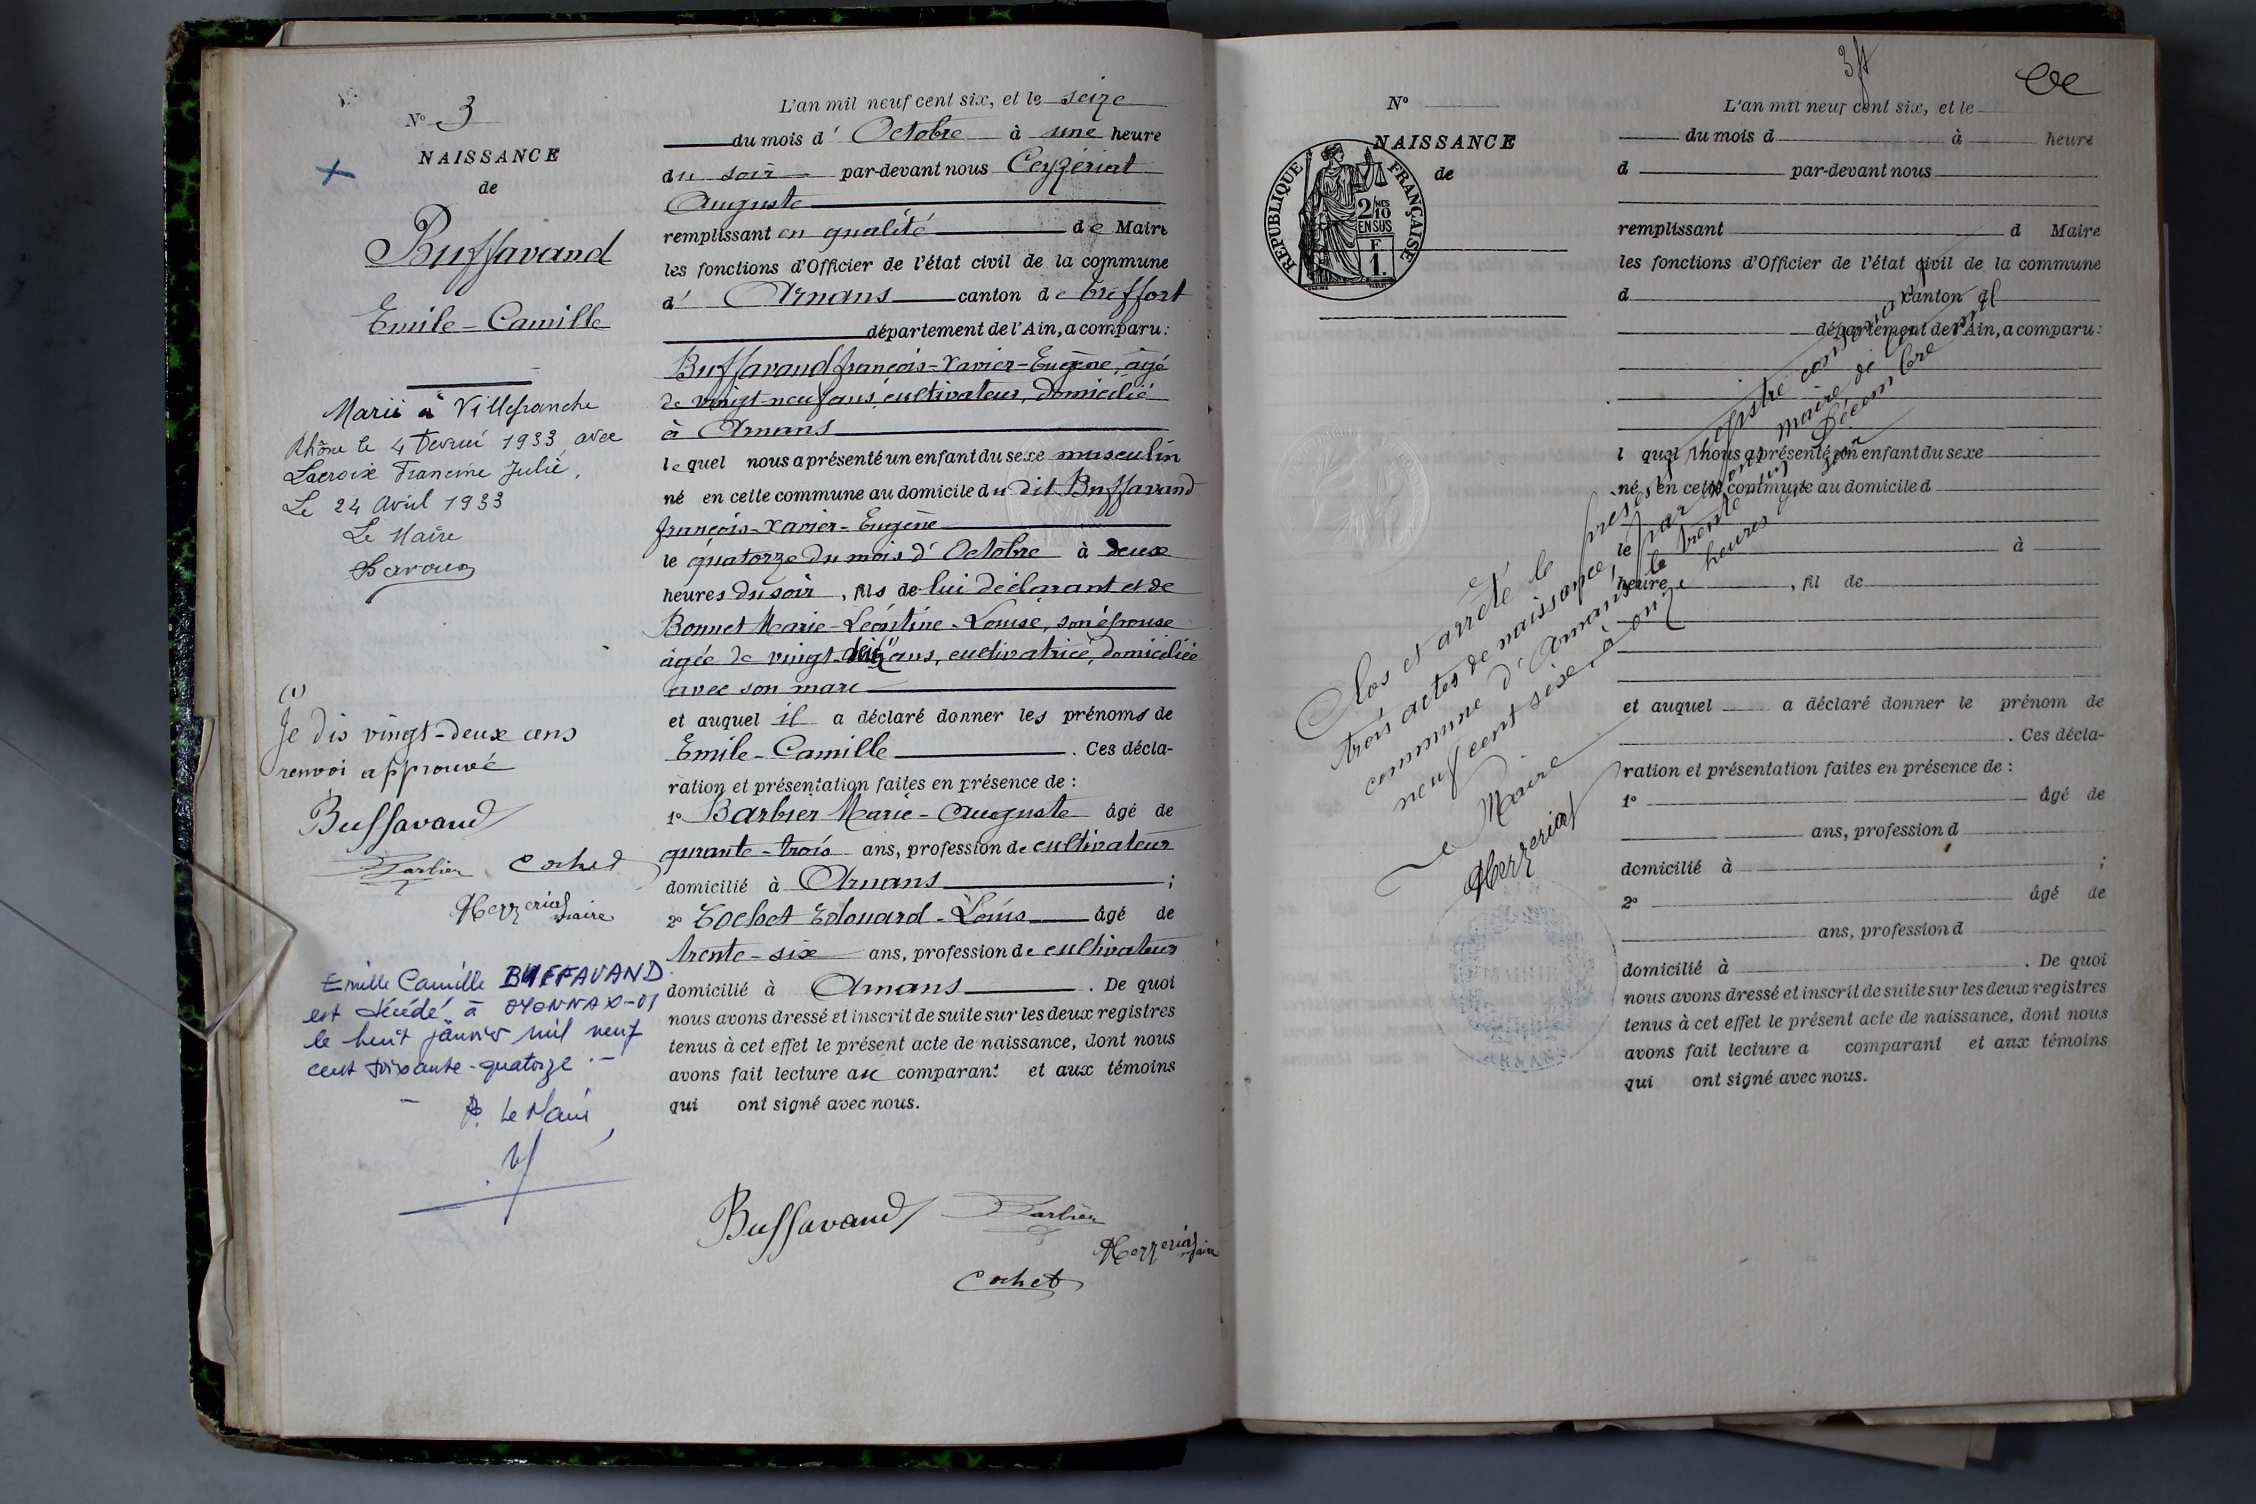 N° 3
NAISSANCE
de
Buffavand
Emile-Camille
Marié à Villefranche
Rhône le 4 Février 1933 avec
Lacroix Francine Julie,
Le 24 Avril 1933
Le Maire
(1)
Je dis vingt-deux ans
renvoi approuvé
Buffavand
Barbier Cochet
maire
Emille Camille BUFFAVAND
est décédé à OYONNAX-01
le huit janvier mil neuf
cent soixante-quatorze.-
P. Le Maire,
L'an mil neuf cent six, et le seize
du mois d' Octobre à une heure
du soir par-devant nous Ceyzériat
Auguste
remplissant en qualité de Maire
les fonctions d'Officier de l'état civil de la commune
d' Arnans canton de Treffort
département de l'Ain, a comparu:
Buffavand françois-Xavier-Eugène, âgé
de vingt-neuf ans, cultivateur, domicilié
à Arnans
lequel nous a présenté un enfant du sexe masculin
né en cette commune au domicile du dit Buffavand
françois-Xavier-Eugène
le quatorze du mois d' Octobre à deux
heures du soir, fils de lui déclarant et de
Bonnet Marie-Léontine-Louise, son épouse
âgée de vingt (1) ans, cultivatrice, domiciliée
avec son mari
et auquel il a déclaré donner les prénoms de
Emile-Camille. Ces décla-
ration et présentation faites en présence de :
1° Barbier Marie-Auguste âgé de
qurante-trois ans, profession de cultivateur
domicilié à Arnans ;
2° Cochet Edouard-Louis âgé de
trente-six ans, profession de cultivateur
domicilié à Arnans. De quoi
nous avons dressé et inscrit de suite sur les deux registres
tenus à cet effet le présent acte de naissance, dont nous
avons fait lecture au comparant et aux témoins
qui ont signé avec nous.
Buffavand Barbier
Cochet
3
N°
NAISSANCE
de
REPUBLIQUE FRANÇAISE
2/10 MES
EN SUS
F
1.
L'an mil neuf cent six, et le
du mois d à heure
d par-devant nous
remplissant d Maire
les fonctions d'Officier de l'état civil de la commune
d canton d
département de l'Ain, a comparu:
l quel nous a présenté un enfant du sexe
né en cette commune au domicile d
le à
heure , fil de
et auquel a déclaré donner le prénom de
. Ces décla-
ration et présentation faites en présence de :
1° âgé de
ans, profession d
domicilié à ;
2° âgé de
ans, profession d
domicilié à . De quoi
nous avons dressé et inscrit de suite sur les deux registres
tenus à cet effet le présent acte de naissance, dont nous
avons fait lecture a comparant et aux témoins
qui ont signé avec nous.
Clos et arrêté le présent registre contenant
trois actes de naissance, par nous maire de la
commune d'Arnans le trente un Décembre mil
neuf cent six, à onze heures
Le Maire